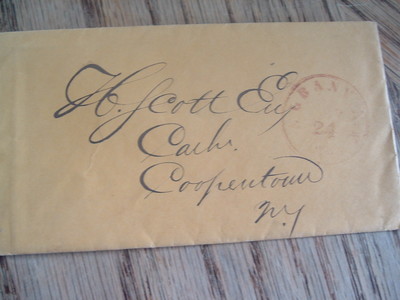 H. Scott Esq
Cashr.
Cooperstown
N.Y
24